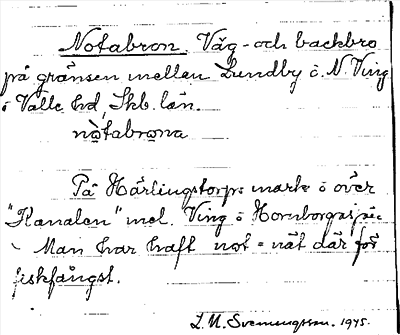 Notabron. Väg- och backbro
på gränsen mellan Lundby o. N. Ving
i Valle hd, Skb. län.
nòtabrona
På Härlingstorps mark i över
"Kanalen" mel. Ving o Hornborgasjö
Man har haft not = nät där för
fiskfångst.
L. M. Svenungsson. 1945.